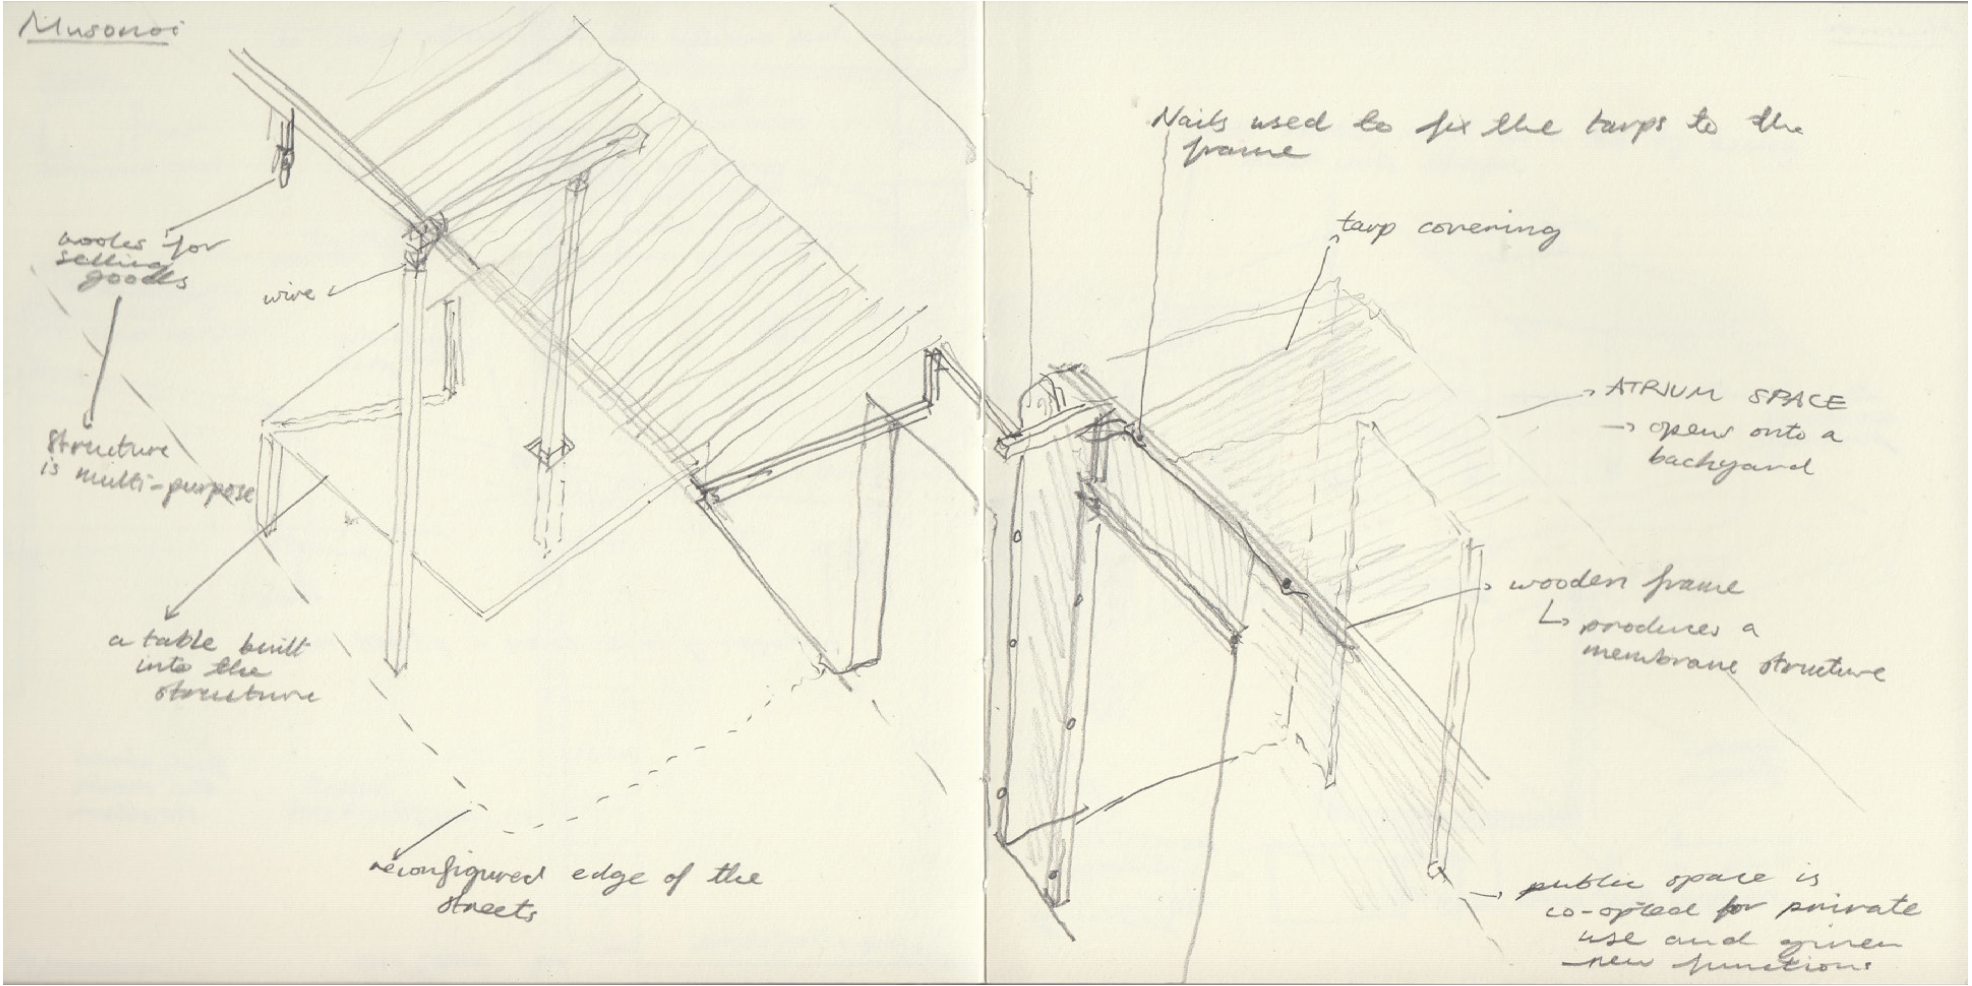 Musonoi
hooks for
selling
goods
wire
structure
is multi-purpose
a table built
into the
structure
reconfigured edge of the
streets
Nails used to fix the tarps to the
frame
tarp covering
ATRIUM SPACE
→ opens onto a
backyard
wooden frame
↳ produces a
membrane structure
public space is
co-opted for private
use and given
new functions